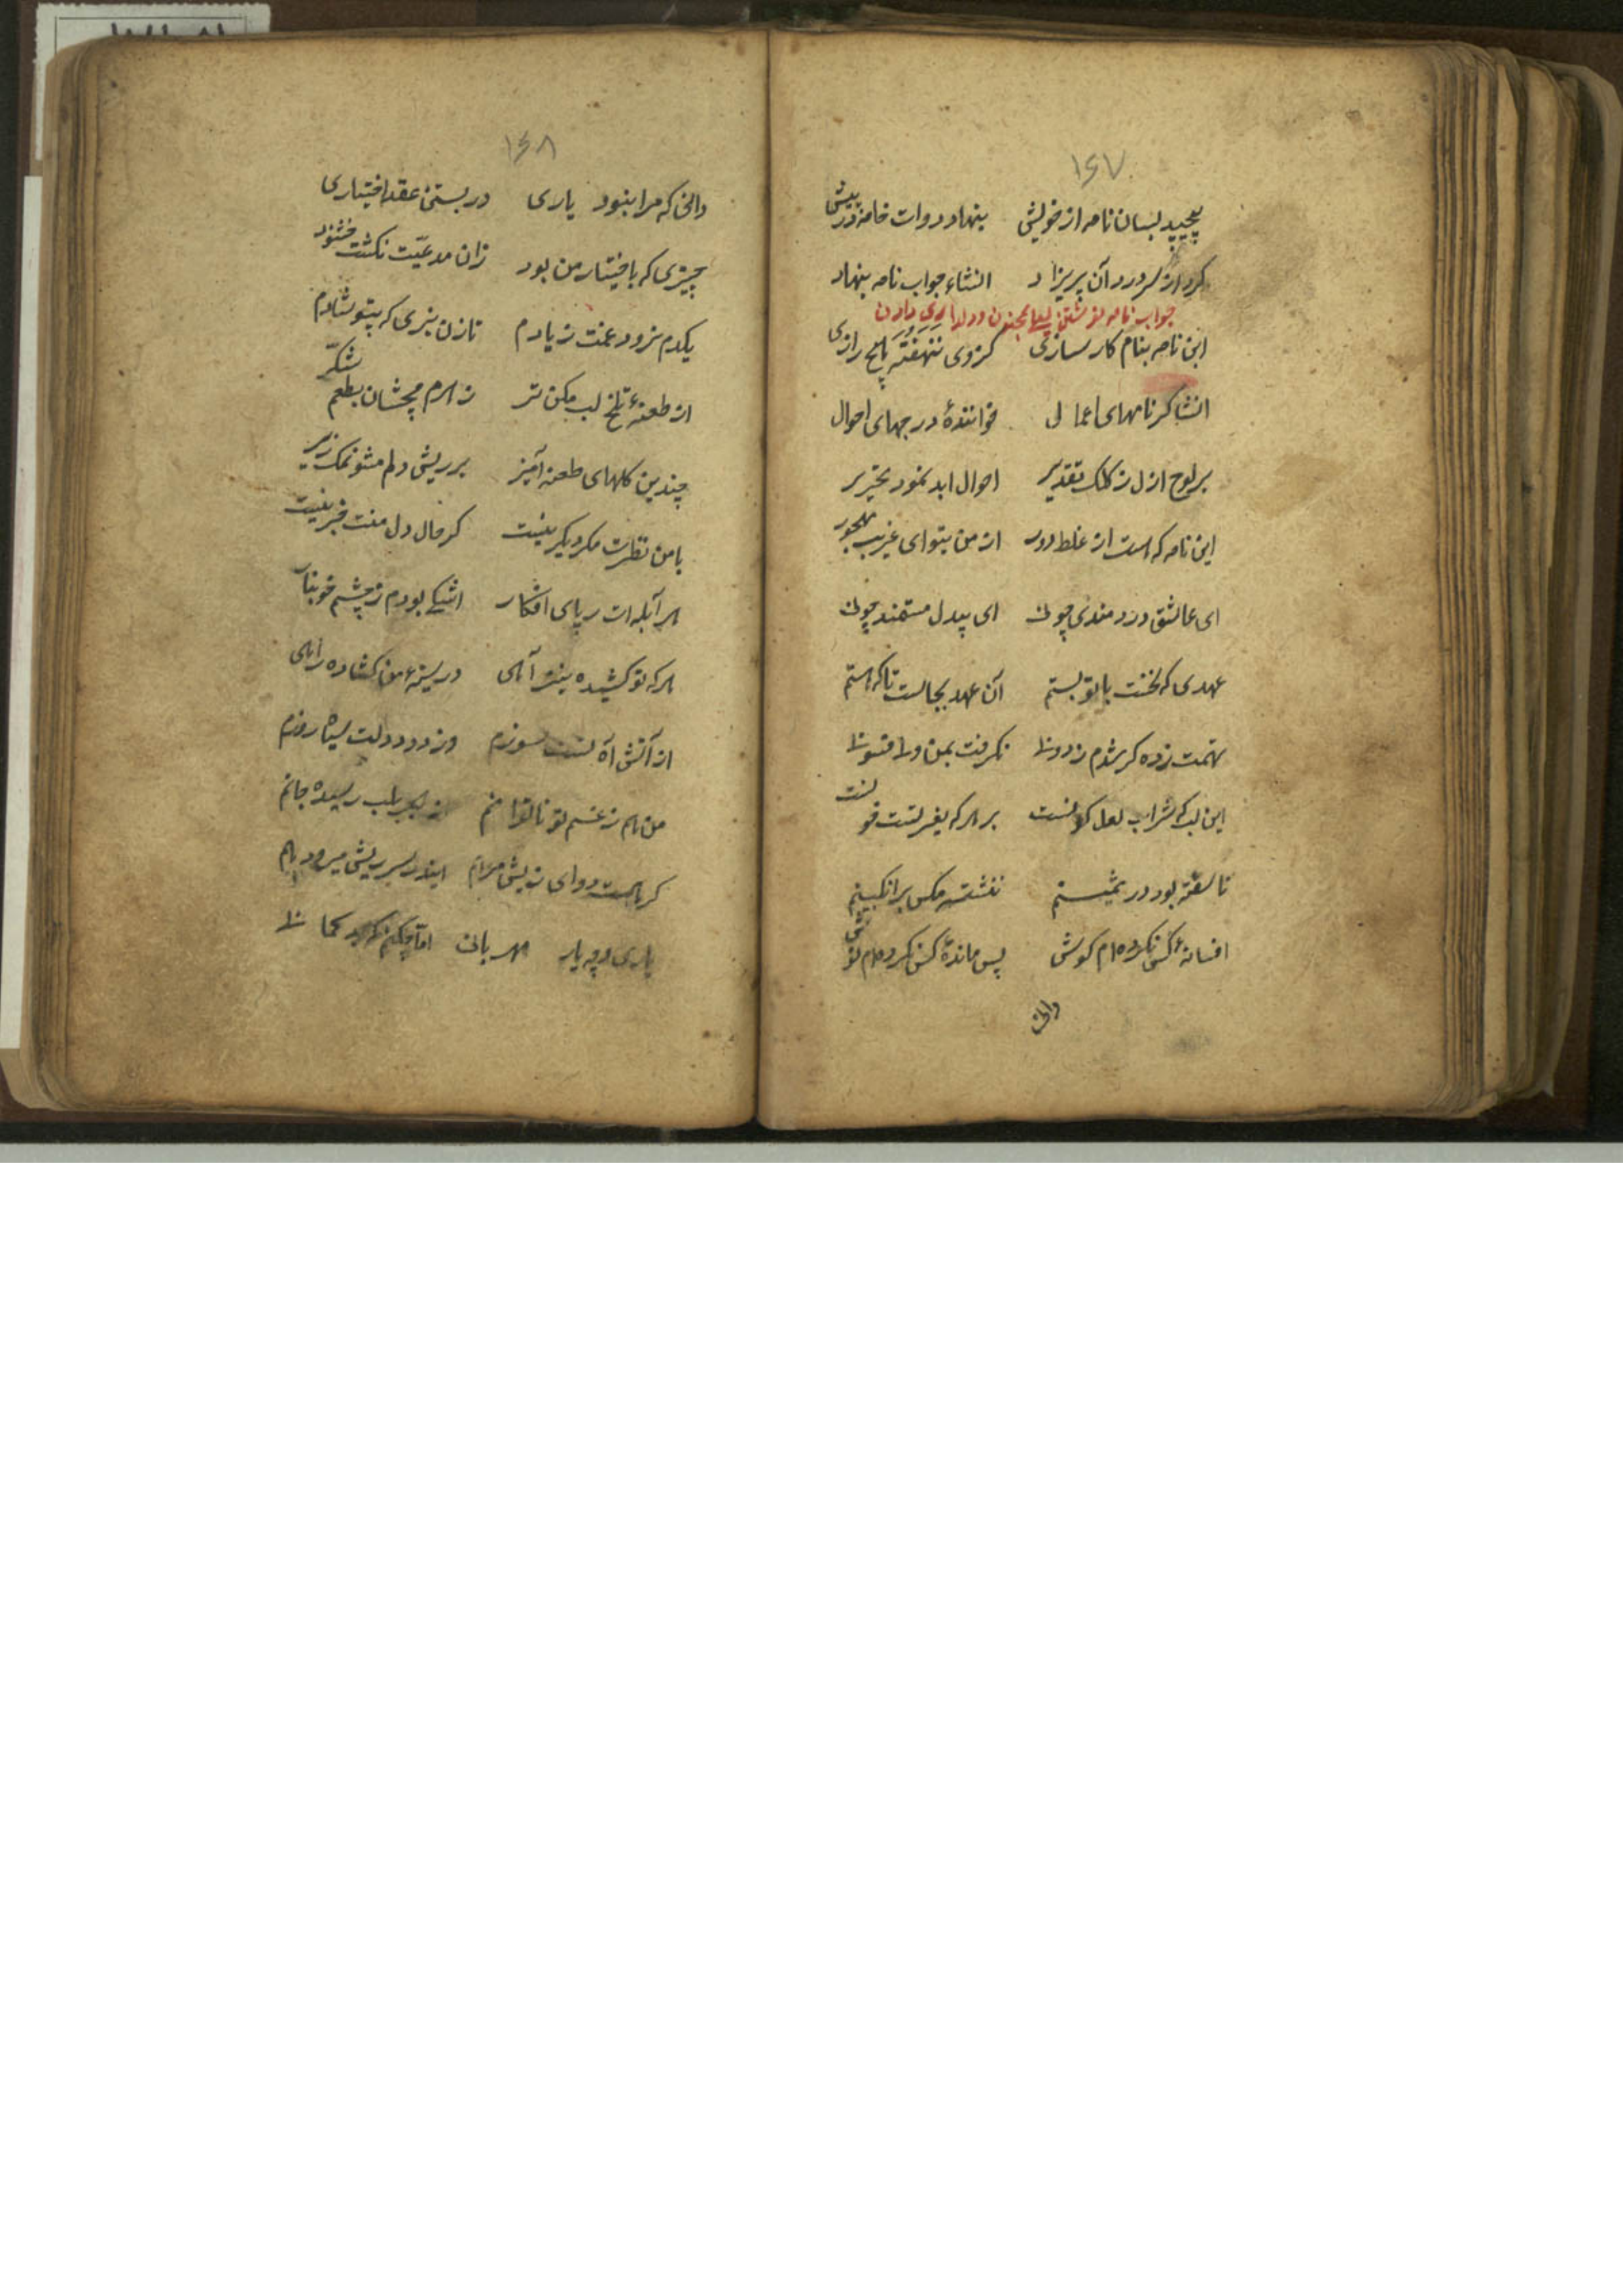 ۱۶۷
پیچید بسان نامه از خویش بنهاد دوات خامه در پیش
کرد از سر درد آن پریزاد انشاء جواب نامه بنهاد
جواب نامه نوشتن لیلی بمجنون و دلداری دادن
این نامه بنام کارسازی کز وی ننهفته هیچ رازی
انشاکر نامهای اعمالی خوانندهٔ درجهای احوال
بر لوح ازل ز کلک تقدیر احوال ابد نمود تحریر
این نامه که هست از غلط دور از من بتو ای غریب مهجور
ای عاشق دردمند چونی ای بیدل مستمند چونی
عهدی که نخست با تو بستم آن عهد بجاست تا که هستم
تهمت زده کر شدم ز دونان نکرفت بمن
این لب که شراب لعل کونست بر هر که بغیر تست خونست
ناسفته بود در ثمینم ننشسته مکس بر انکبینم
افسانهٔ کس نکرده‌ام کوش پس ماندهٔ کس نکرده‌ام نوش
دانی
۱۶۸
دانی که مرا نبود یاری در بستن عقد اختیاری
چیزی که باختیار من بود زان مدعیت نکشت خشنود
یکدم نرود غمت ز یادم تا زن نبری که بیتو شادم
از طعنهٔ تلخ لب مکن تر زهرم مچشان بطعم شکّر
چندین کلهای طعنه آمیز بر ریش دلم مشو نمک ریز
با من نظرت مکر دیکر نیست کز حال دل منت خبر نیست
هر آبله‌ات ز پای افکار اشکی بودم ز چشم خونبار
هر که تو کشیدهٔ آهی در سینهٔ من کشاده راهی
از آتش آه تست سوزم وز دود دلت سیاه روزم
من هم ز غم تو ناتوانم از هجر بلب رسیده جانم
کر هست دوای ریش مرهم اینقدر بسر ریش میرود هم
یاری و چه یار مهربانی امّا چکنم